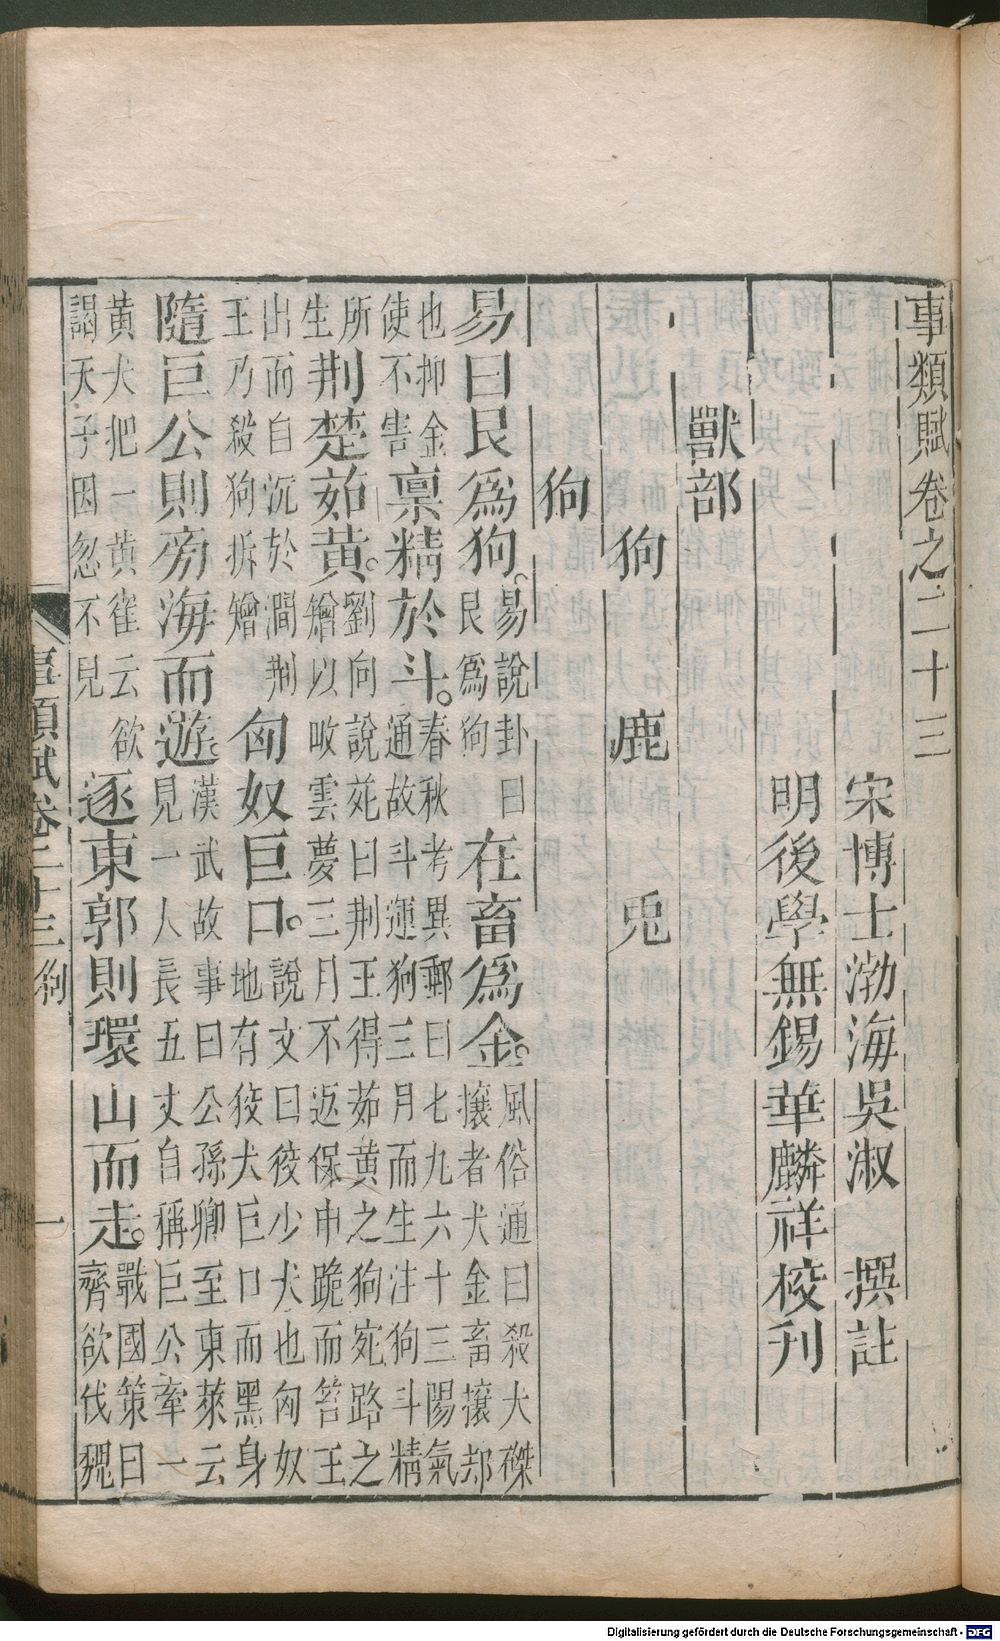 事類賦卷之二十三
宋博士渤海吳淑　撰註
明後學無錫華麟祥校刋
獸部
狗　鹿　兎
狗
易曰艮爲狗。易說卦曰艮爲狗在畜爲金。風俗通曰殺犬磔攘者犬金畜攘却
也抑金使不害稟精於斗。春秋考異郵曰七九六十三陽氣通故斗運狗三月而生注狗斗精
所生荆楚茹黄。劉向說苑曰荆王得茹黄之狗宛路之矰以畋雲夢三月不返保申跪而笞王
王乃殺狗拆矰出而自沉於澗荆匈奴巨口。說文曰狡少犬也匈奴地有狡犬巨口而黑身
隨巨公則旁海而遊。漢武故事曰公孫卿至東萊云見一人長五丈自稱巨公牽一
黄犬把一黄雀云欲謁天子因忽不見逐東郭則環山而走。戰國策曰齊欲伐魏
事類賦卷二十三　狗　一
Digitalisierung gefördert durch die Deutsche Forschungsgemeinschaft - DFG